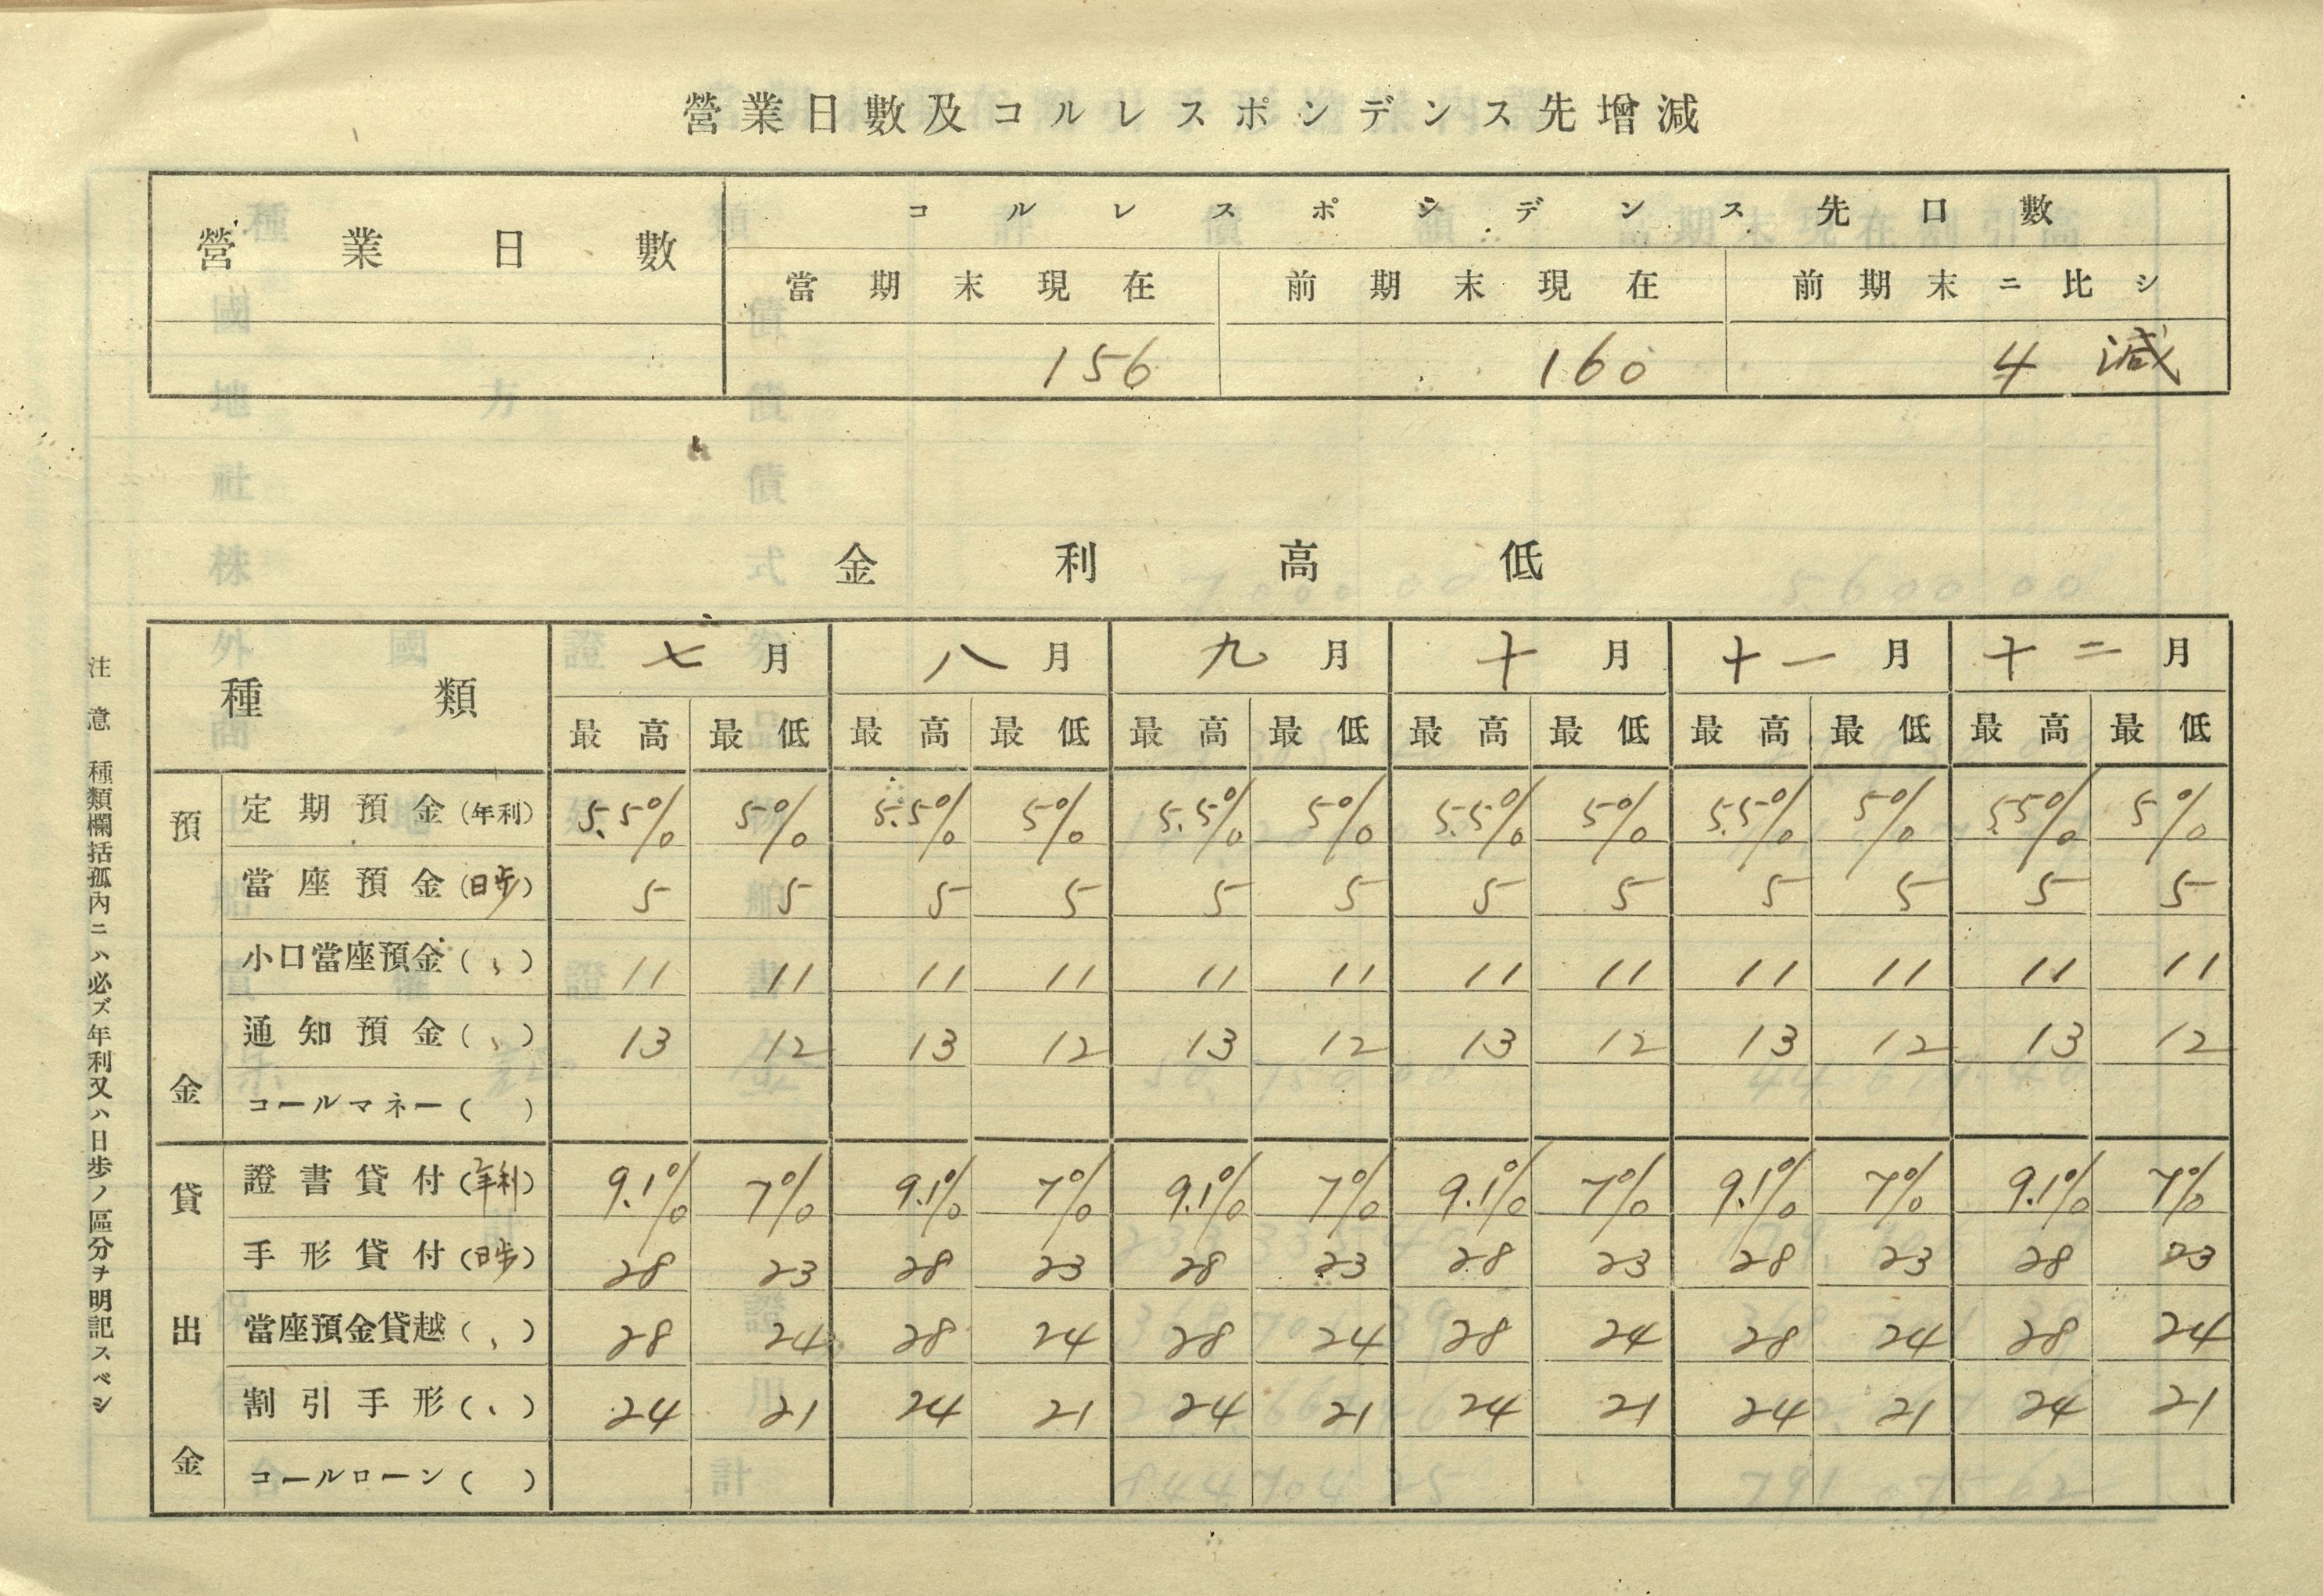 營業日數及コルレスポンデンス先增減
營業日數 コルレスポンデンス先口數
當期末現在 前期末現在 前期末ニ比シ
156 160 4 減
金利高低
種類 七月 八月 九月 十月 十一月 十二月
最高 最低 最高 最低 最高 最低 最高 最低 最高 最低 最高 最低
預金
定期預金(年利) 5.5% 5% 5.5% 5% 5.5% 5% 5.5% 5% 5.5% 5% 5.5% 5%
當座預金(日歩) 5 5 5 5 5 5 5 5 5 5 5 5
小口當座預金(〃) 11 11 11 11 11 11 11 11 11 11 11 11
通知預金(〃) 13 12 13 12 13 12 13 12 13 12 13 12
コールマネー( )
貸出金
證書貸付(年利) 9.1% 7% 9.1% 7% 9.1% 7% 9.1% 7% 9.1% 7% 9.1% 7%
手形貸付(日歩) 28 23 28 23 28 23 28 23 28 23 28 23
當座預金貸越(〃) 28 24 28 24 28 24 28 24 28 24 28 24
割引手形(〃) 24 21 24 21 24 21 24 21 24 21 24 21
コールローン( )
注意 種類欄括孤內ニハ必ズ年利又ハ日歩ノ區分ヲ明記スベシ